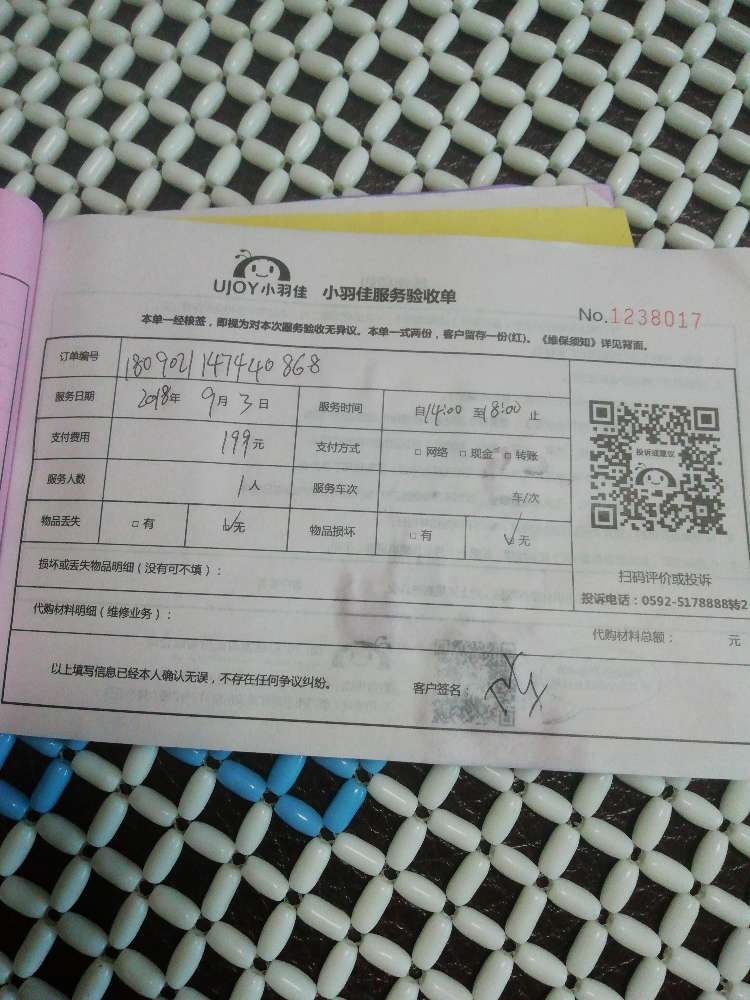 UJOY小羽佳 小羽佳服务验收单
No.1238017
本单一经核签，即视为对本次服务验收无异议。本单一式两份，客户留存一份(红)。《维保须知》详见背面。
订单编号 180902147440868
服务日期 2018年 9月 3日 服务时间 自14:00 至18:00 止
支付费用 199元 支付方式 □ 网络 □ 现金 □ 转账
投诉或建议
服务人数 1人 服务车次 车/次
物品丢失 □ 有 ☑ 无 物品损坏 □ 有 ☑ 无
扫码评价或投诉
损坏或丢失物品明细（没有可不填）：
投诉电话：0592-5178888转2
代购材料明细（维修业务）：
代购材料总额： 元
以上填写信息已经本人确认无误，不存在任何争议纠纷。 客户签名：